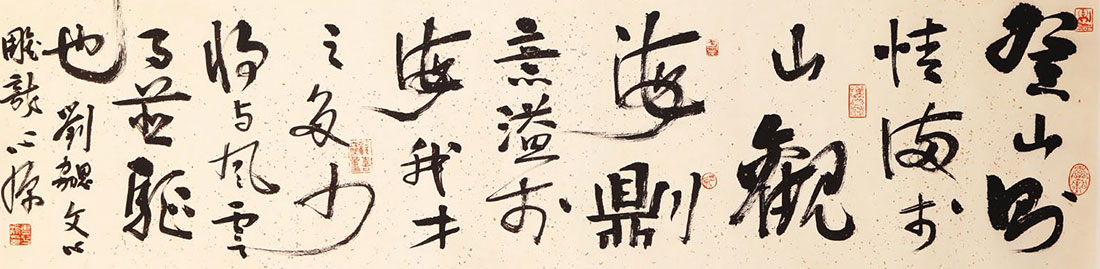 登山則
情滿於
山觀
海則
意溢於
海我才
之多少
將与風雲
而並驅
也劉勰文心
雕龍